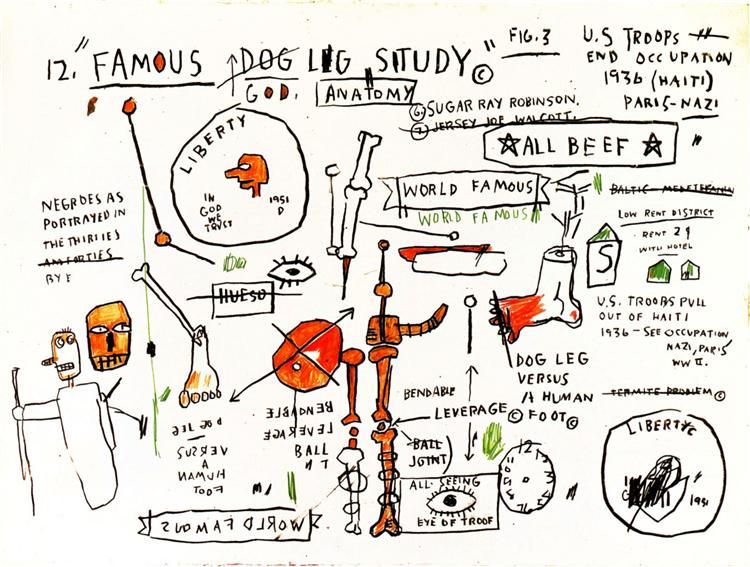 12. "FAMOUS DOG LEG STUDY" ©
GOD.
ANATOMY
FIG. 3
U.S TROOPS
END OCCUPATION
1936 (HAITI)
PARIS-NAZI
⑥ SUGAR RAY ROBINSON.
⑦ JERSEY JOE WALCOTT.
☆ ALL BEEF ☆ "
LIBERTY
IN
GOD
WE
TRUST
1951
D
WORLD FAMOUS
WORLD FAMOUS
LOW RENT DISTRICT
RENT 29
WITH HOTEL
S
NEGROES AS
PORTRAYED IN
THE THIRTIES
AN FORTIES
BYE
HUESO
U.S. TROOBS PULL
OUT OF HAITI
1936 - SEE OCCUPATION
NAZI, PARIS
WW II.
DOG LEG
VERSUS
A HUMAN
FOOT ©
TERMITE PROBLEM ©
BENDABLE
LEVERAGE ©
BALL
JOINT
BENDABLE
LEVERAGE
BALL
DOG LEG
VERSUS
A
HUMAN
FOOT
ALL-SEEING
EYE OF TROOF
WORLD FAMOUS
LIBERTY ©
1951